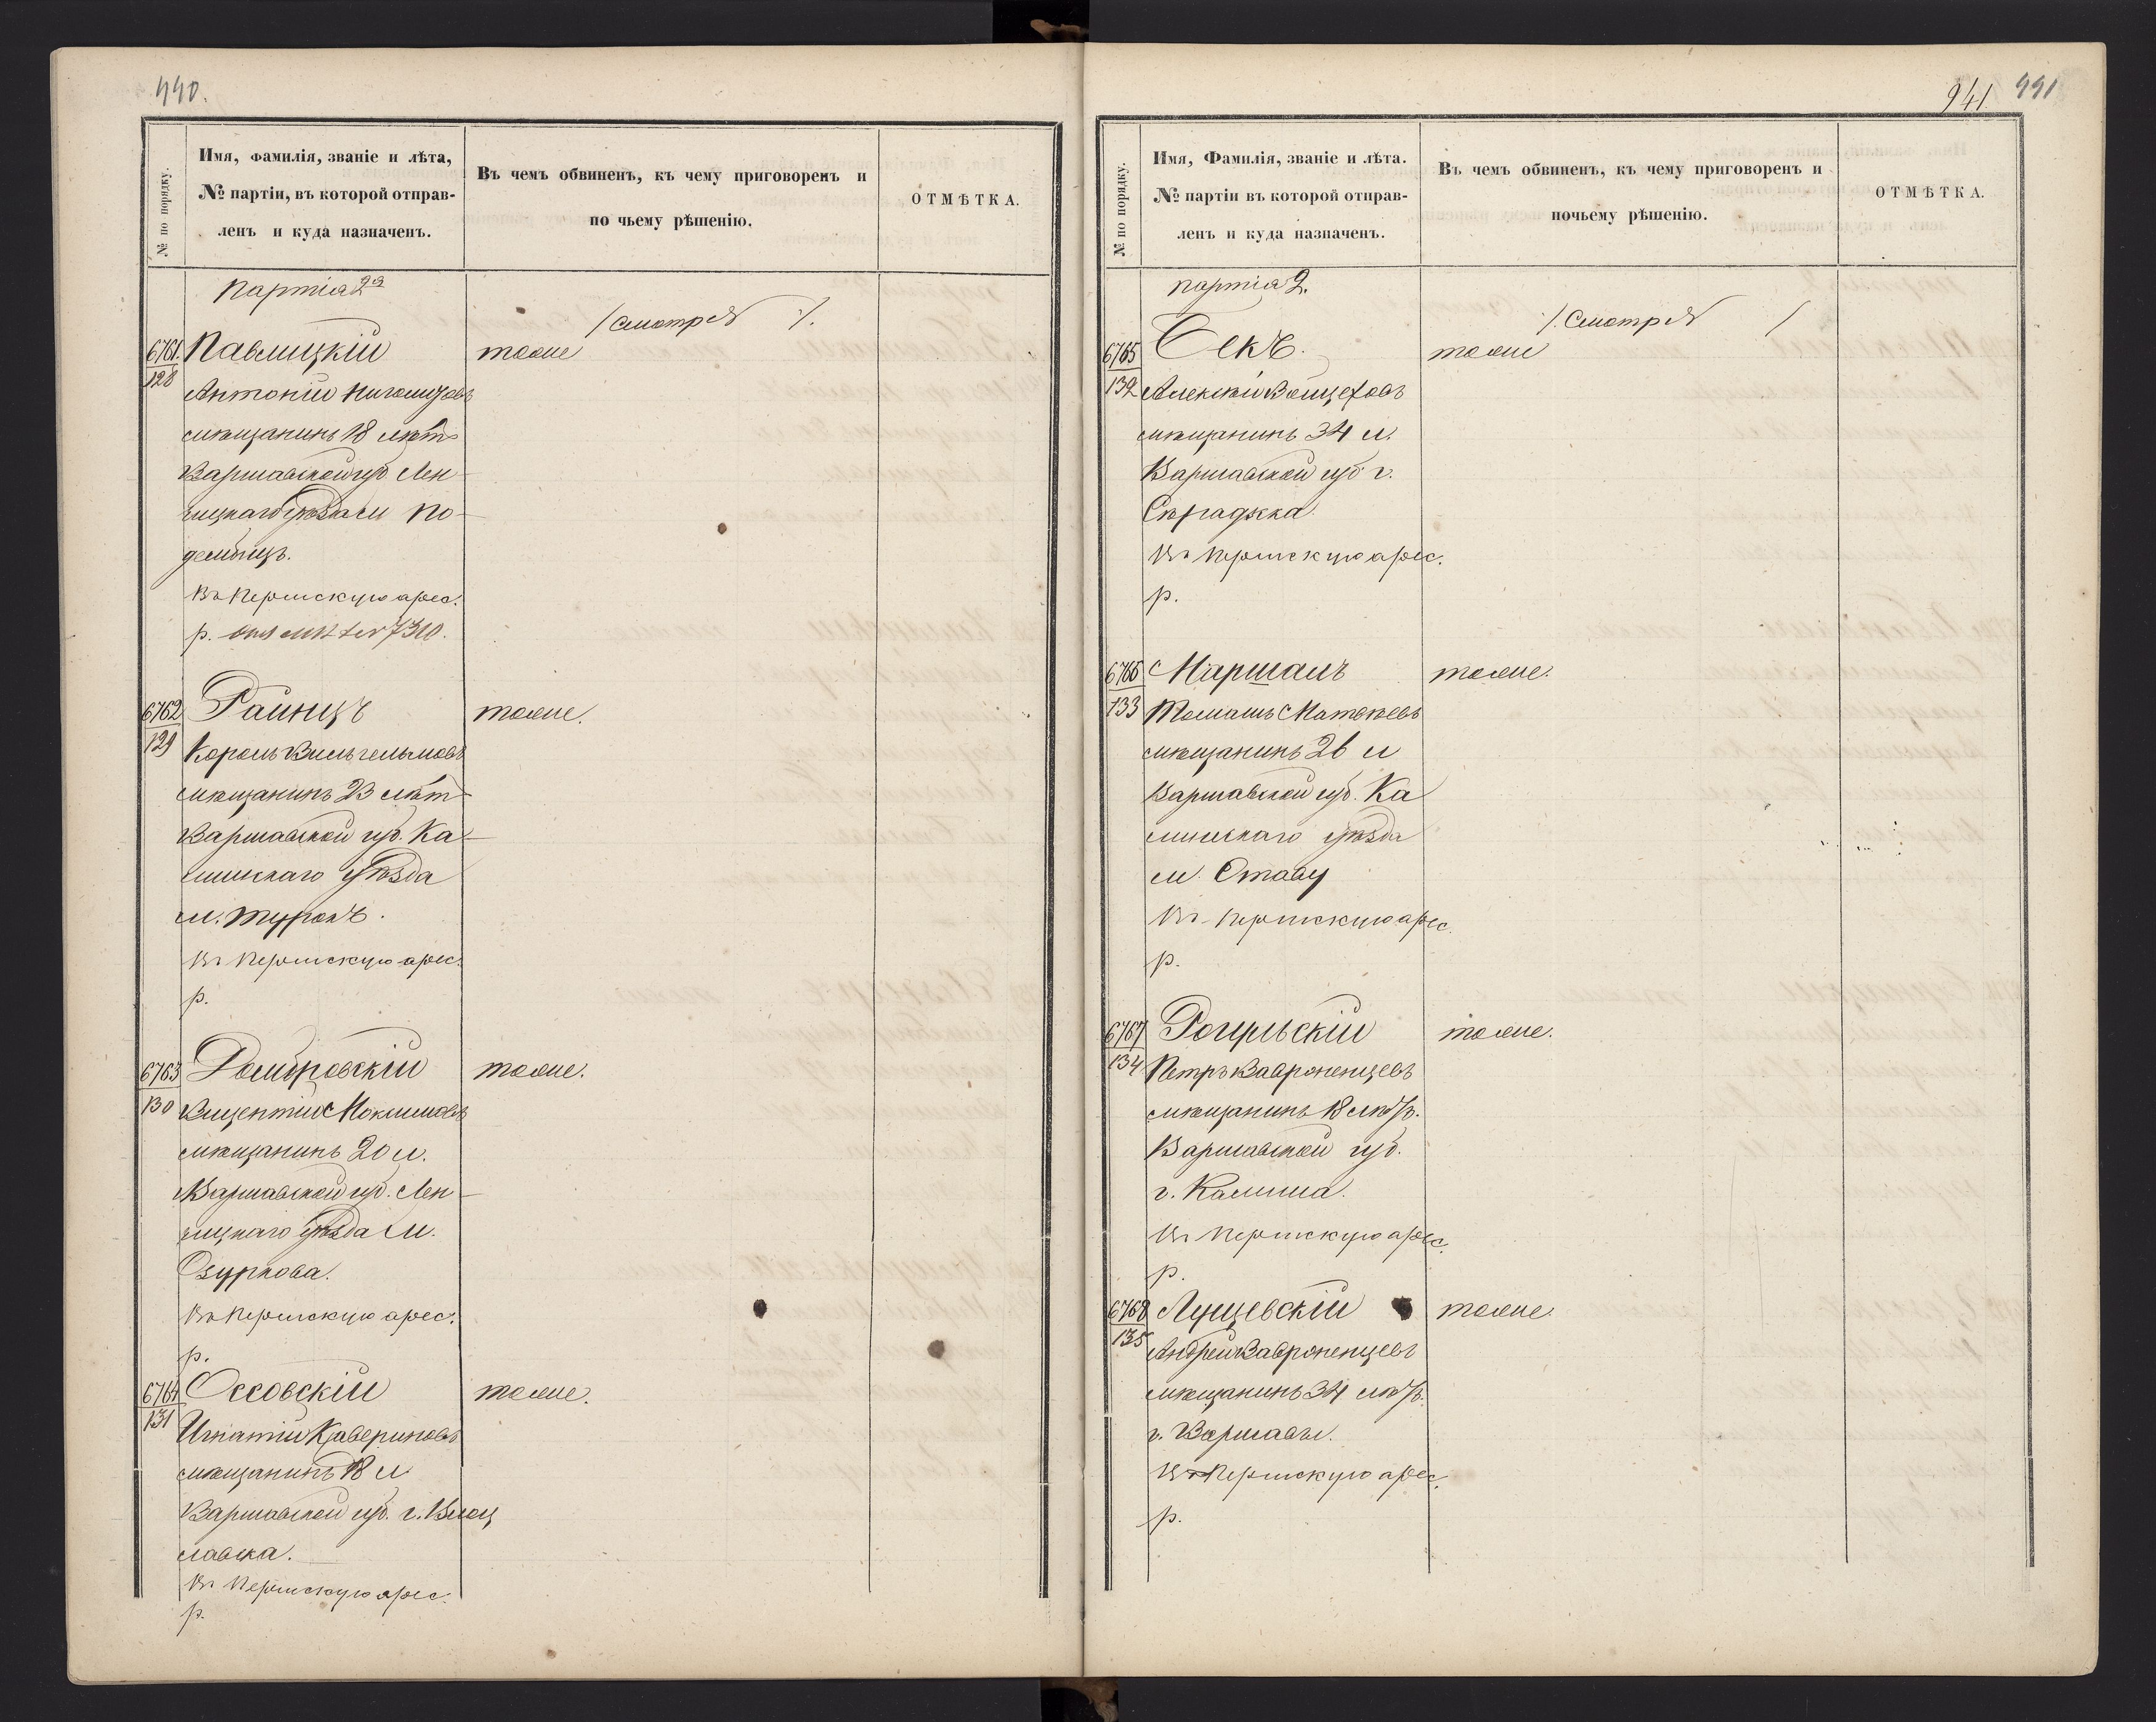 440.
№ по порядку.
Имя, фамилія, званіе и лѣта,
№ партіи, въ которой отправ-
ленъ и куда назначенъ.
Въ чемъ обвиненъ, къ чему приговоренъ и
по чьему рѣшенію.
ОТМѢТКА.
партія 2я
/смотр № /.
6761. Павлицкій тоже
128
Антоній
мѣщанинъ 18 лѣтъ
Варшавской губ. Лен-
чицкаго уѣзда м По-
дембицъ.
Въ Пермскую арес.
р. 7310.
6762 Райнцъ тоже.
129
Кароль Вильгельмовъ
мѣщанинъ 23 лѣт
Варшавской губ. Ка-
лишскаго уѣзда
м. Турокъ.
Въ Пермскую арес.
р.
6763 Домбровскій тоже.
130
Вицентій Максимовъ
мѣщанинъ 20 л.
Варшавской губ. Лен-
чицкаго уѣзда м.
Озуркова.
Въ Пермскую арес.
р.
6764 Оссовскій тоже.
131
Игнатій Ксавериновъ
мѣщанинъ 18 л
Варшавской губ. г. Влоц
лавска.
Въ Пермскую арес.
р.
941 441
№ по порядку.
Имя, Фамилія, званіе и лѣта.
№ партіи въ которой отправ-
ленъ и куда назначенъ.
Въ чемъ обвиненъ, къ чему приговоренъ и
почьему рѣшенію.
ОТМѢТКА.
партія 2.
/. Смотр № /
6765 Секъ. тоже
132
Алексѣй Войцеховъ
мѣщанинъ 34 л.
Варшавской губ г.
Сѣраджка
Въ Пермскую арес.
р.
6766 Маршалъ тоже.
133
Томашъ Матвѣевъ
мѣщанинъ 26 л
Варшавской губ. Ка
лишскаго уѣзда
м. Ставу
Въ Пермскую арес.
р.
6767 тоже.
134
Петръ Вавроненцевъ
мѣщанинъ 18 лѣтъ.
Варшавской губ.
г. Калиша.
Въ Пермскую арес.
р.
6768 Лущевскій тоже.
135
Андрей Вавроненцевъ
мѣщанинъ 34 лѣтъ.
г. Варшавы.
Въ Пермскую арес.
р.